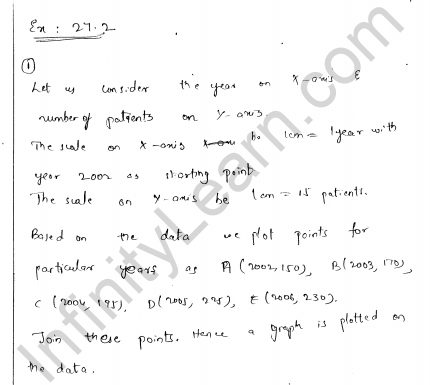 Ex : 27.2
①
Let us consider the year on X-axis &
number of patients on Y-axis
The scale on X-axis be 1cm = 1year with
year 2002 as starting point
The scale on Y-axis be 1cm = 15 patients.
Based on the data we plot points for
particular years as A(2002,150), B(2003,170),
C(2004,195), D(2005,225), E(2006,230).
Join these points. Hence a graph is plotted on
the data.
InfinityLearn.com